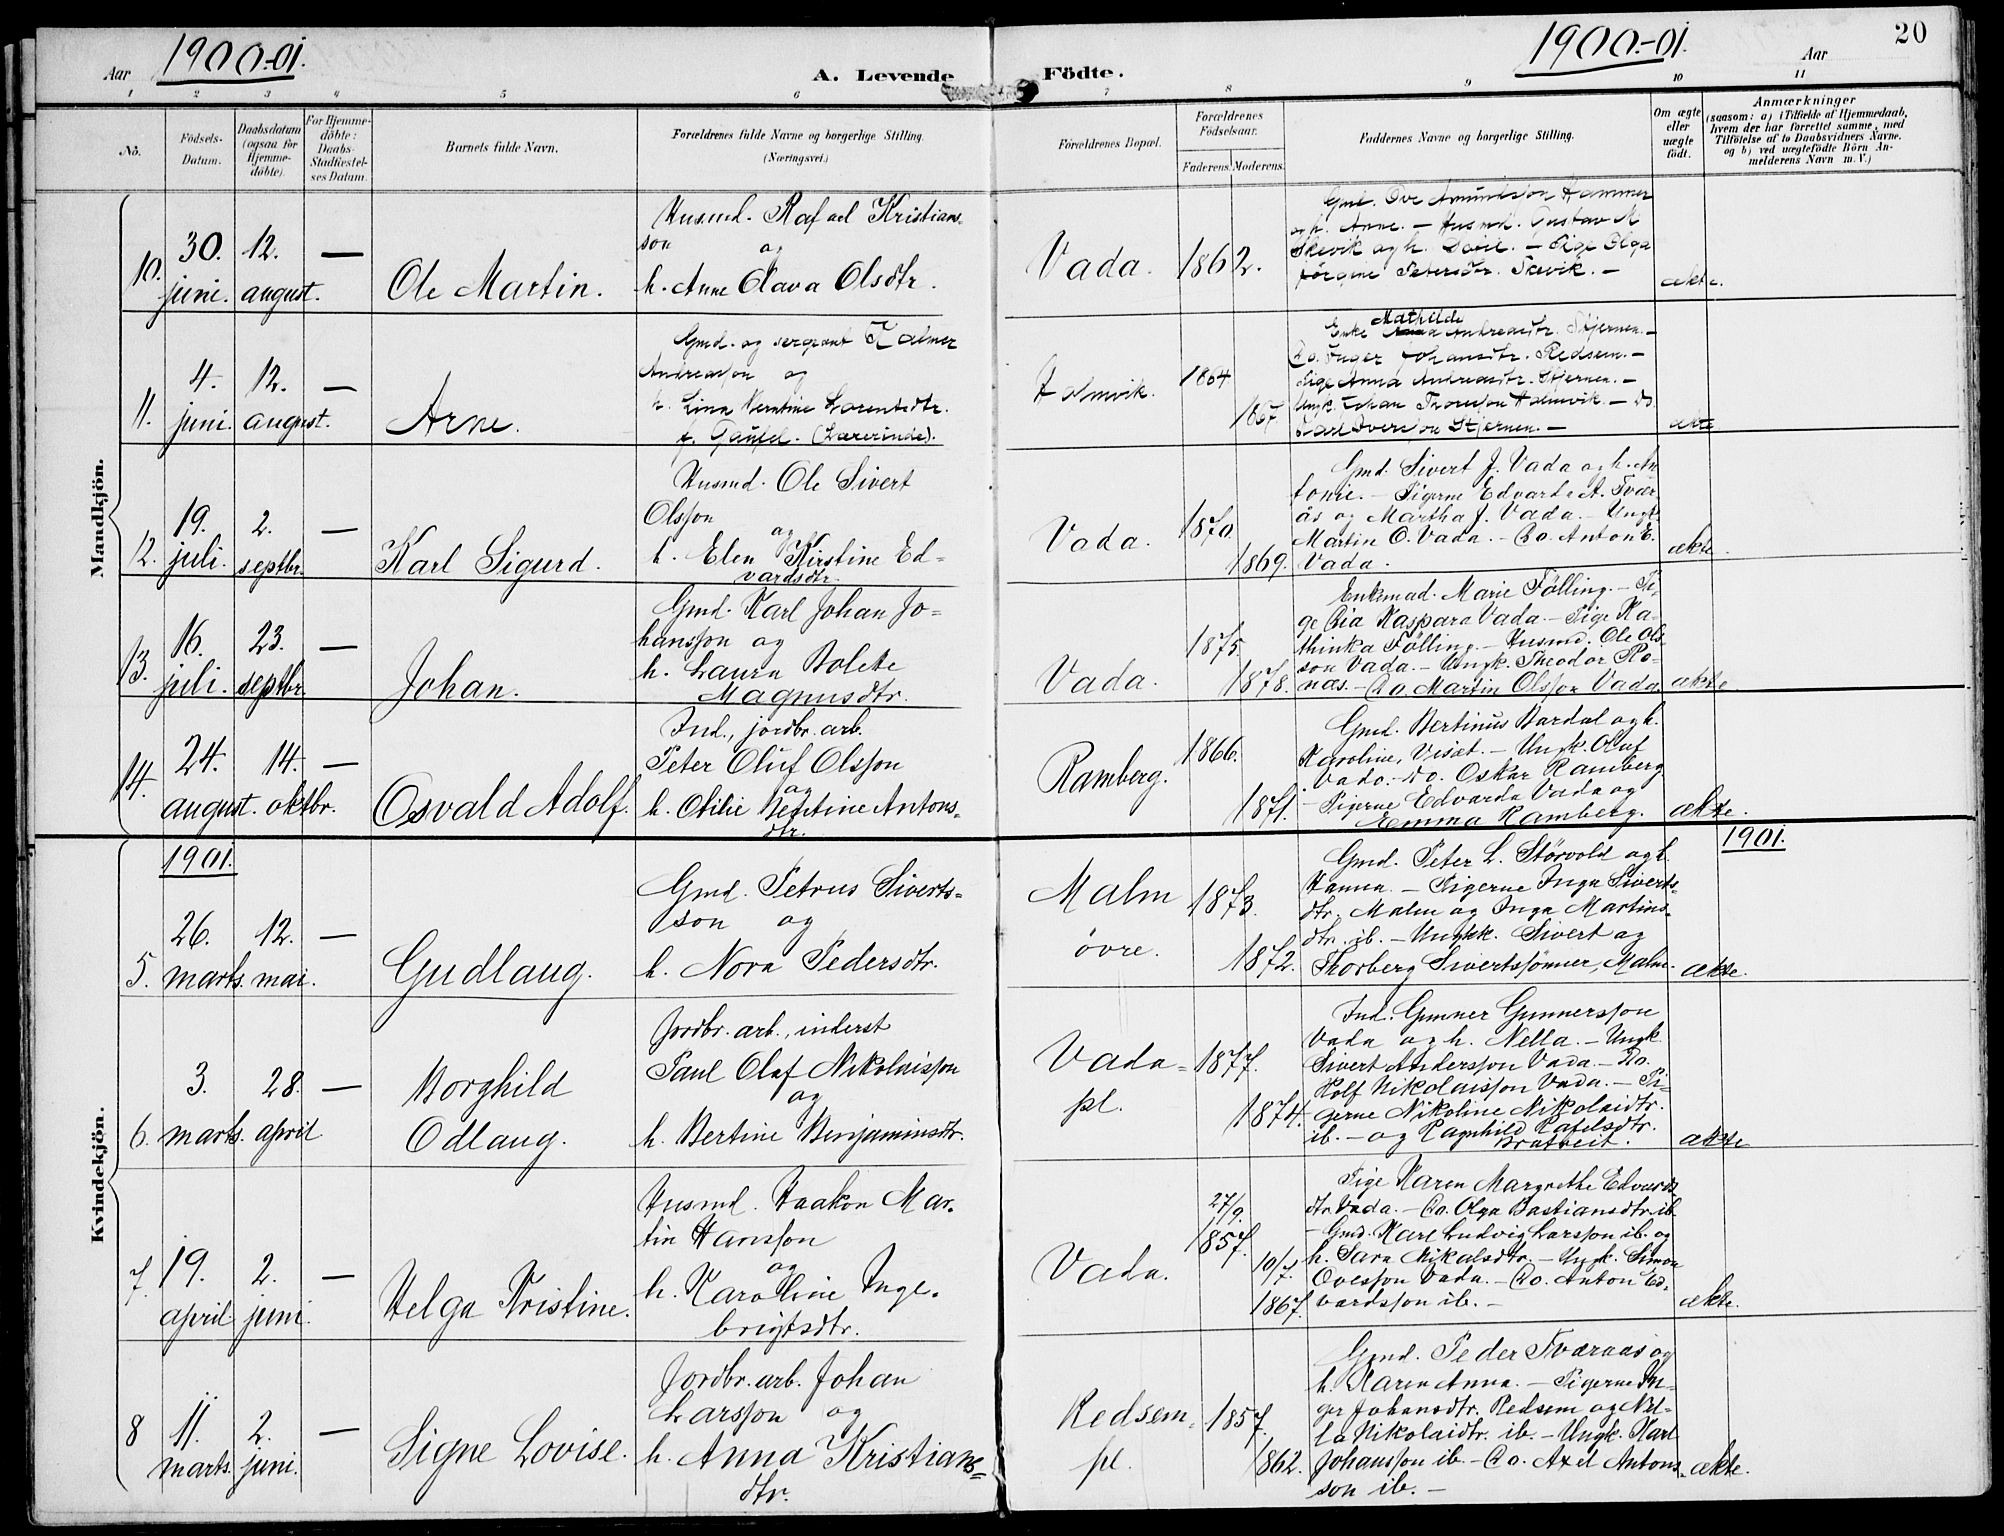 Aar 1900-01.
A. Levende Födte.
1900-01. Aar
20
1 2 3 4 5 6 7 8 9 10 11
No.
Födsels-
Datum.
Daabsdatum
(ogsaa for
Hjemme-
döbte).
For Hjemme-
döbte:
Daabs-
Stadfæstel-
ses Datum.
Barnets fulde Navn.
Forældrenes fulde Navne og borgerlige Stilling.
(Næringsvei.)
Forældrenes Bopæl.
Forældrenes
Födselsaar.
Faderens. Moderens.
Faddernes Navne og borgerlige Stilling.
Om ægte
eller
uægte
födt.
Anmærkninger
(saasom: a) i Tilfælde af Hjemmedaab,
hvem der har forrettet samme, med
Tilföielse af to Daabsvidners Navne,
og b) ved uægtefödte Börn An-
melderens Navn m. V.)
Mandkjön.
10.
30.
juni.
12.
august.
—
Ole Martin.
Husmd. Rafael Kristians-
son og
h. Anne Olava Olsdtr.
Vada.
1862.
Gmd. Ove Amundsson Hammer
og h. Anne. — Husmd. Gustav M
Skevik og h. — Pige Olga
Jörgine Petersdtr. Skevik. —
ækte.
11.
4.
juni.
12.
august.
—
Arne.
Gmd. og sergeant Halmer
Andreasson og
h. Lina Lorentsdtr.
f. (Lærerinde).
Holmvik.
1864
1867
Mathilde
Enke Andreasdtr. Stjernen. —
Do. Inger Johansdtr. Redsem. —
Pige Anna Andreasdtr. Stjernen. —
Ungk. Johan Thoresson Holmvik. — Do.
Karl Iversson Stjernen. —
ækte
12.
19.
juli.
2.
septbr.
—
Karl Sigurd.
Husmd. Ole Sivert
Olsson
og
h. Elen Kirstine Ed-
vardsdtr.
Vada.
1870.
1869.
Gmd. Sivert J. Vada og h. An
tonie. — Pigerne Edvarda A. Tvær
ås og Martha J. Vada. — Ungk.
Martin O. Vada. — Do. Anton E.
Vada.
ækte.
13.
16.
juli.
23.
septbr.
—
Johan.
Gmd. Karl Johan Jo-
hansson og
h. Laura Bolete
Magnusdtr.
Vada.
1875.
1878.
Enkemad. Marie Følling. — Pi-
ge Pia Kaspara Vada — Pige Ka-
thinka Følling. — Husmd. Ole Ols-
son Vada. — Ungk. Theodor Ro-
næs. — Do. Martin Olsson Vada.
ækte
14.
24.
august.
14.
oktbr.
—
Osvald Adolf.
Ind., jordbr. arb.
Peter Oluf Olsson
og
h. Otilie Berntine Antons-
dtr.
Ramberg.
1866.
1871.
Gmd. Bertinus Bardal og h.
Karoline, Visæt. — Ungk. Oluf
Vada. — Do. Oskar Ramberg
— Pigerne Edvarda Vada og
Emma Ramberg.
ækte.
Kvindekjön.
1901.
1901.
5.
26.
marts.
12.
mai.
—
Gudlaug.
Gmd. Petrus Siverts-
son og
h. Nora Pedersdtr.
Malm
övre.
1873.
1872.
Gmd. Peter L. Størvold og h.
Hanna. — Pigerne Inga Siverts-
dtr. Malm og Inga Martins-
dtr. ib. — Ungkk. Sivert og
Thorberg Sivertssønner, Malm.
ækte.
6.
3.
marts.
28.
april
—
Borghild
Odlaug.
Jordbr. arb., inderst
Paul Olaf Nikolaisson
og
h. Bertine Benjaminsdtr.
Vada-
pl.
1877.
1874.
Ind. Gunner Gunnersson
Vada og h. Nella. — Ungk.
Sivert Andersson Vada. — Do.
Rolf Nikolaisson Vada. — Pi-
gerne Nikoline Nikolaidtr.
ib. — og Ragnhild Rafelsdtr.
Bratreit.
ækte
7.
19.
april
2.
juni.
—
Helga Kristine.
Husmd. Haakon Mar-
tin Hansson
og
h. Karoline Inge-
brigtsdtr.
Vada.
27/9.
1857.
10/7.
1867.
Pige Karen Margrethe Edvards-
dtr. Vada. — Do. Olga Bastiansdtr. ib.
— Gmd. Karl Ludvig Larsson ib. og
h. Sara Nikolsdtr. — Ungk. Simon
Ovesson Vada. — Do. Anton Ed-
vardsson ib. —
ækte.
8
11.
marts.
2.
juni.
—
Signe Lovise.
Jordbr. arb. Johan
Larsson og
h. Anna Kristians-
dtr.
Redsem-
pl.
1857.
1862.
Gmd. Peder Tværaas og
h. Karen Anna. — Pigerne In-
ger Johansdtr. Redsem og Nel-
la Nikolaidtr. ib. — Ungk. Karl
Johansson ib. — Do. Axel Antons-
son ib. —
ækte.